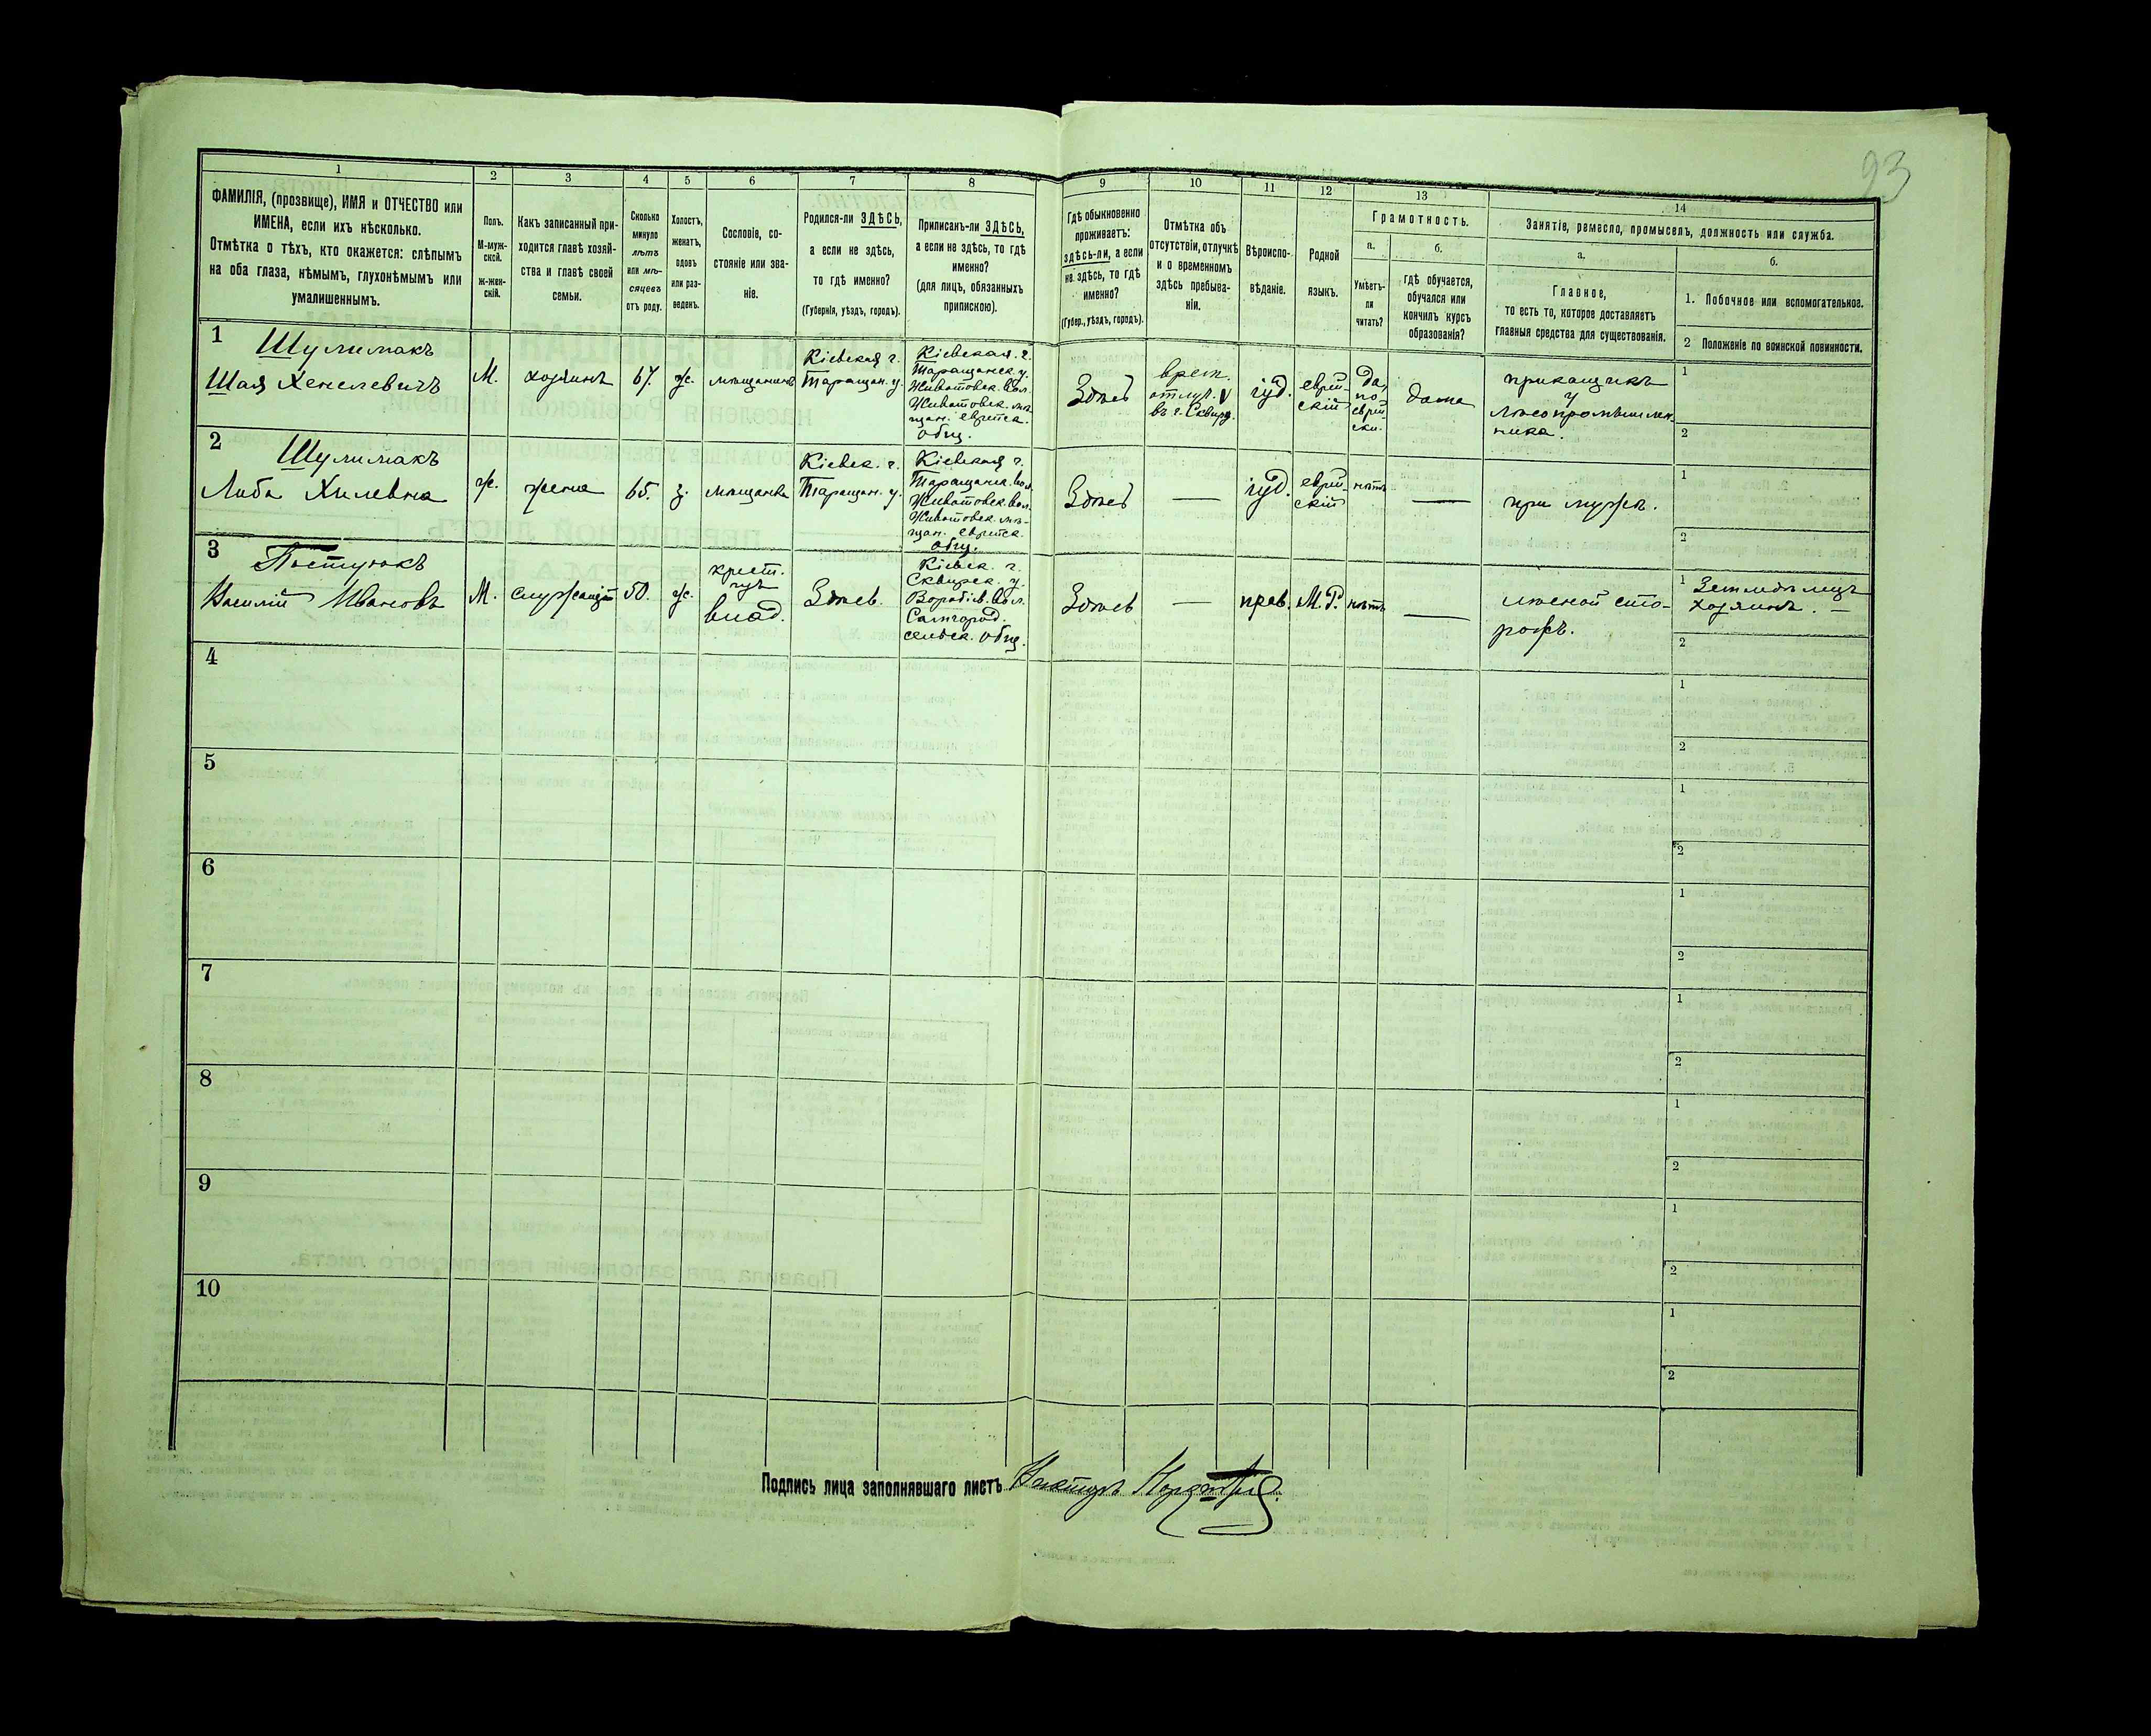 93
1
2
3
4
5
6
7
8
9
10
11
12
13
14
ФАМИЛІЯ, (прозвище), ИМЯ и ОТЧЕСТВО или
ИМЕНА, если ихъ нѣсколько.
Отмѣтка о тѣхъ, кто окажется: слѣпымъ
на оба глаза, нѣмымъ, глухонѣмымъ или
умалишеннымъ.
Полъ.
М-муж-
ской.
ж-жен-
скій.
Какъ записанный при-
ходится главѣ хозяй-
ства и главѣ своей
семьи.
Сколько
минуло
лѣтъ
или мѣ-
сяцевъ
отъ роду.
Холостъ,
женатъ,
вдовъ
или раз-
веденъ.
Сословіе, со-
стояніе или зва-
ніе.
Родился-ли ЗДѢСЬ,
а если не здѣсь,
то гдѣ именно?
(Губернія, уѣздъ, городъ).
Приписанъ-ли ЗДѢСЬ,
а если не здѣсь, то гдѣ
именно?
(для лицъ, обязанныхъ
припискою).
Гдѣ обыкновенно
проживаетъ:
здѣсь-ли, а если
не здѣсь, то гдѣ
именно?
(Губер., уѣздъ, городъ).
Отмѣтка объ
отсутствіи, отлучкѣ
и о временномъ
здѣсь пребыва-
ніи.
Вѣроиспо-
вѣданіе.
Родной
языкъ.
Грамотность.
а.
Умѣетъ-
ли
читать?
б.
гдѣ обучается,
обучался или
кончилъ курсъ
образованія?
Занятіе, ремесло, промыселъ, должность или служба.
а.
Главное,
то есть то, которое доставляетъ
главныя средства для существованія.
б.
1. Побочное или вспомогательное.
2 Положеніе по воинской повинности.
1
Шулимакъ
Шая Хенелевичъ
М.
хозяинъ
67.
ж.
мѣщанинъ
Кіевская г.
Таращан. у.
Кіевская. г.
Таращанск. у.
Животовск. вол.
Животовск. мѣ-
щан. еврейск.
общ.
Здѣсь
врем.
отлуч. V
въ г. Сквиру.
іуд.
еврей-
скій
Да,
по
еврей-
ски.
дома
прикащикъ
у
лѣсопромышлен-
ника.
1
2
2
Шулимакъ
Либа Хилевна
ж.
жена
65.
з.
мѣщанка
Кіевск. г.
Таращан. у.
Кіевская г.
Животовск. вол.
Животовск. мѣ-
щан. еврейск.
общ.
Здѣсь
—
іуд.
еврей-
скій
нѣтъ
—
при мужѣ.
1
2
3
Василій Ивановъ
М.
служащій
50.
ж.
крест.
влад.
Здѣсь.
Кіевск. г.
Сквирск. у.
Воробіев. вол.
Самгород.
сельск. общ.
Здѣсь
—
прав.
М. Р.
нѣтъ
—
лѣсной сто-
рожъ.
1 Земледѣлецъ
хозяинъ. —
2
4
1
2
5
1
2
6
1
2
7
1
2
8
1
2
9
1
2
10
1
2
Подпись лица заполнявшаго листъ